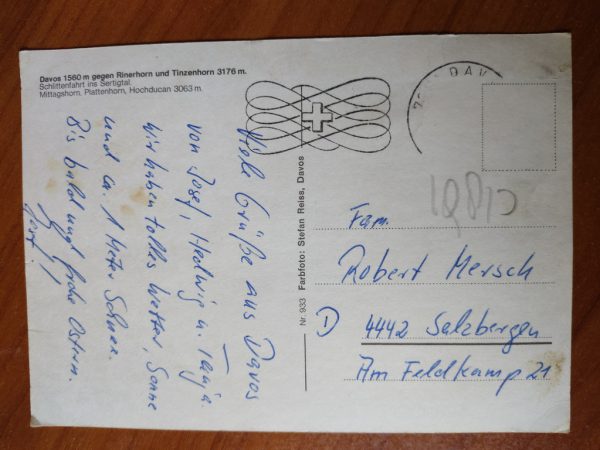 Davos 1560 m gegen Rinerhorn und Tinzenhorn 3176 m.
Schlittenfahrt ins Sertigtal.
Mittagshorn, Plattenhorn, Hochducan 3063 m
Viele Grüße aus Davos
von Josef, Hedwig u. Tanja.
Wir haben tolles Wetter, Sonne
und ca. 1 Meter Schnee.
Bis bald und frohe Ostern.
Nr. 933 Farbfoto: Stefan Reiss, Davos
DAV
Fam.
Robert Mersch
D 4442 Salzbergen
Am Feldkamp 21